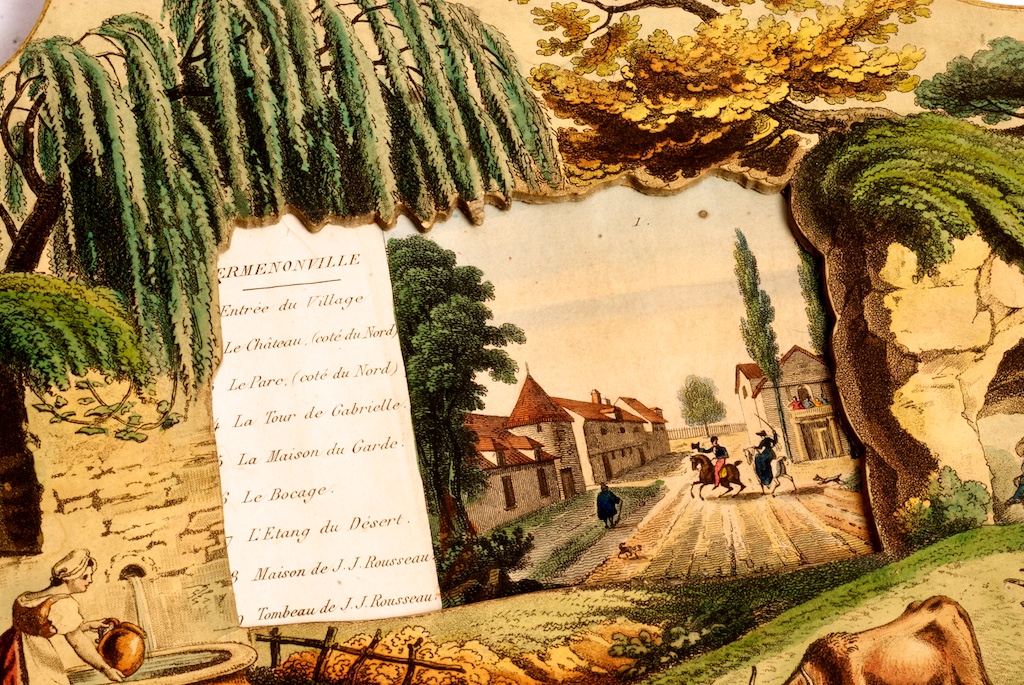 ERMENONVILLE
Entrée du Village
Le Château, (coté du Nord)
Le Parc, (coté du Nord)
4 La Tour de Gabrielle.
5 La Maison du Garde.
6 Le Bocage.
7 L'Etang du Désert.
8 Maison de J.J. Rousseau
Tombeau de J.J. Rousseau.
1.